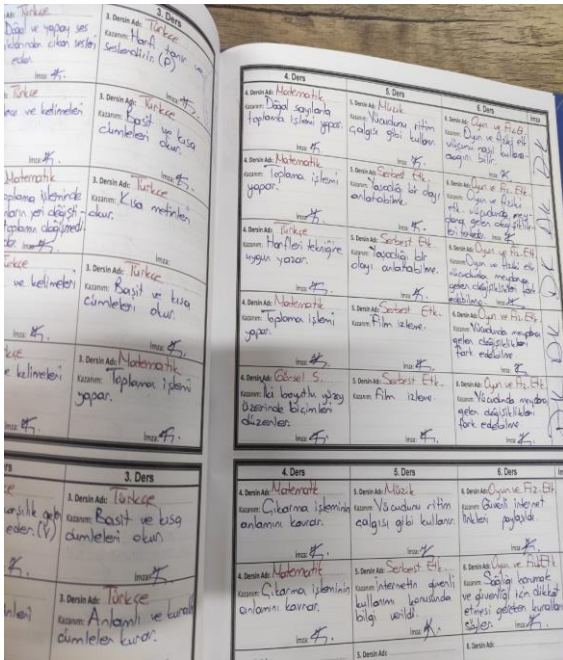 3. Ders
Türkçe
Doğal ve yapay ses
çıkan sesleri
eder.
İmza:
3. Dersin Adı: Türkçe
Kazanım: Harfi tanır ve
seslendirir. (P)
İmza:
Türkçe
ve kelimeleri
İmza:
3. Dersin Adı: Türkçe
Kazanım: Basit ve kısa
cümleleri okur.
İmza:
Matematik
toplama işleminde
yeri değişti-
toplamın değişmedi
3. Dersin Adı: Türkçe
Kazanım: Kısa metinleri
okur.
İmza:
Türkçe
ve kelimeleri
İmza:
3. Dersin Adı: Türkçe
Kazanım: Basit ve kısa
cümleleri okur.
İmza:
kelimeleri
İmza:
3. Dersin Adı: Matematik
Kazanım: Toplama işlemi
yapar.
İmza:
3. Ders
eder. (V)
3. Dersin Adı: Türkçe
Kazanım: Basit ve kısa
cümleleri okur.
İmza:
3. Dersin Adı: Türkçe
Kazanım: Anlamlı ve kurallı
cümleler kurar.
4. Ders
5. Ders
6. Ders
İmza
4. Dersin Adı: Matematik
Kazanım: Doğal sayılarla
toplama işlemi yapar.
İmza:
5. Dersin Adı: Müzik
Kazanım: Vücudunu ritim
çalgısı gibi kullanır.
İmza:
6. Dersin Adı: Oyun ve Fiz. E.
Kazanım: Oyun ve fiziki etk
vücudunu nasıl kullana-
cağını bilir.
İmza:
4. Dersin Adı: Matematik
Kazanım: Toplama işlemi
yapar.
İmza:
5. Dersin Adı: Serbest Etk.
Kazanım: Yaşadığı bir olayı
anlatabilme.
İmza:
6. Dersin Adı: Oyun ve Fiz. Etk.
Kazanım: Oyun ve fiziki
etk. vücudunda mey
dana gelen değişiklik
İmza:
4. Dersin Adı: Türkçe
Kazanım: Harfleri tekniğine
uygun yazar.
İmza:
5. Dersin Adı: Serbest Etk.
Kazanım: Yaşadığı bir
olayı anlatabilme.
İmza:
6. Dersin Adı: Oyun ve Fiz. Etk
Kazanım: Oyun ve fiziki etk
vücudunda meydana
gelen değişiklikleri fark
edebilme.
İmza:
4. Dersin Adı: Matematik
Kazanım: Toplama işlemi
yapar.
İmza:
5. Dersin Adı: Serbest Etk.
Kazanım: Film izleme.
İmza:
6. Dersin Adı: Oyun ve Fiz. Etk.
Kazanım: Vücudunda meydana
gelen değişiklikleri
fark edebilme
İmza:
4. Dersin Adı: Görsel S.
Kazanım: İki boyutlu yüzey
üzerinde biçimleri
düzenler.
İmza:
5. Dersin Adı: Serbest Etk.
Kazanım: Film izleme
İmza:
6. Dersin Adı: Oyun ve Fiz. Etk.
Kazanım: Vücudunda meydana
gelen değişiklikleri
fark edebilme
İmza:
4. Ders
5. Ders
6. Ders
4. Dersin Adı: Matematik
Kazanım: Çıkarma işleminin
anlamını kavrar.
İmza:
5. Dersin Adı: Müzik
Kazanım: Vücudunu ritim
çalgısı gibi kullanır.
İmza:
6. Dersin Adı: Oyun ve Fiz. Etk
Kazanım: Güvenli internet
linkleri paylaşıldı.
İmza:
4. Dersin Adı: Matematik
Kazanım: Çıkarma işleminin
anlamını kavrar.
İmza:
5. Dersin Adı: Serbest Etk.
Kazanım: İnternetin güvenli
kullanımı konusunda
bilgi verildi.
İmza:
6. Dersin Adı: Oyun ve Fiz. Etk
Kazanım: Sağlığı korumak
ve güvenliği için dikkat
etmesi gereken kuralları
söyler.
İmza:
5. Dersin Adı:
6. Dersin Adı: